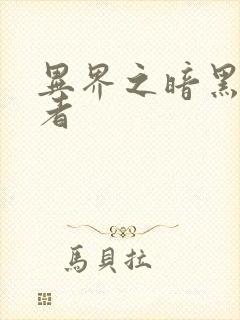 異界之暗黑
者
馬貝拉